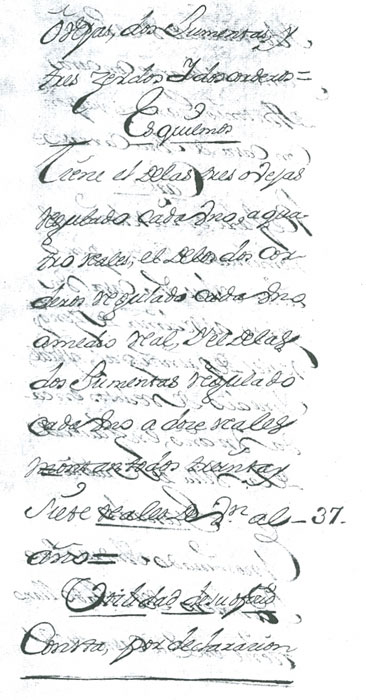 Ovejas, dos Jumentas, y
tres zerdos Y dos corderos =
Esquilmos
Tiene el de las tres ovejas
regulado cada Uno, a qua-
tro reales; el de los dos Cor-
deros regulado cada Uno
a medio real, Y el de las
dos Jumentas regulado
cada Uno a doze reales
montan todos treinta y
Siete reales de Vn al - 37.
año =
Utilidad de su ofizio
Consta, por declarazion